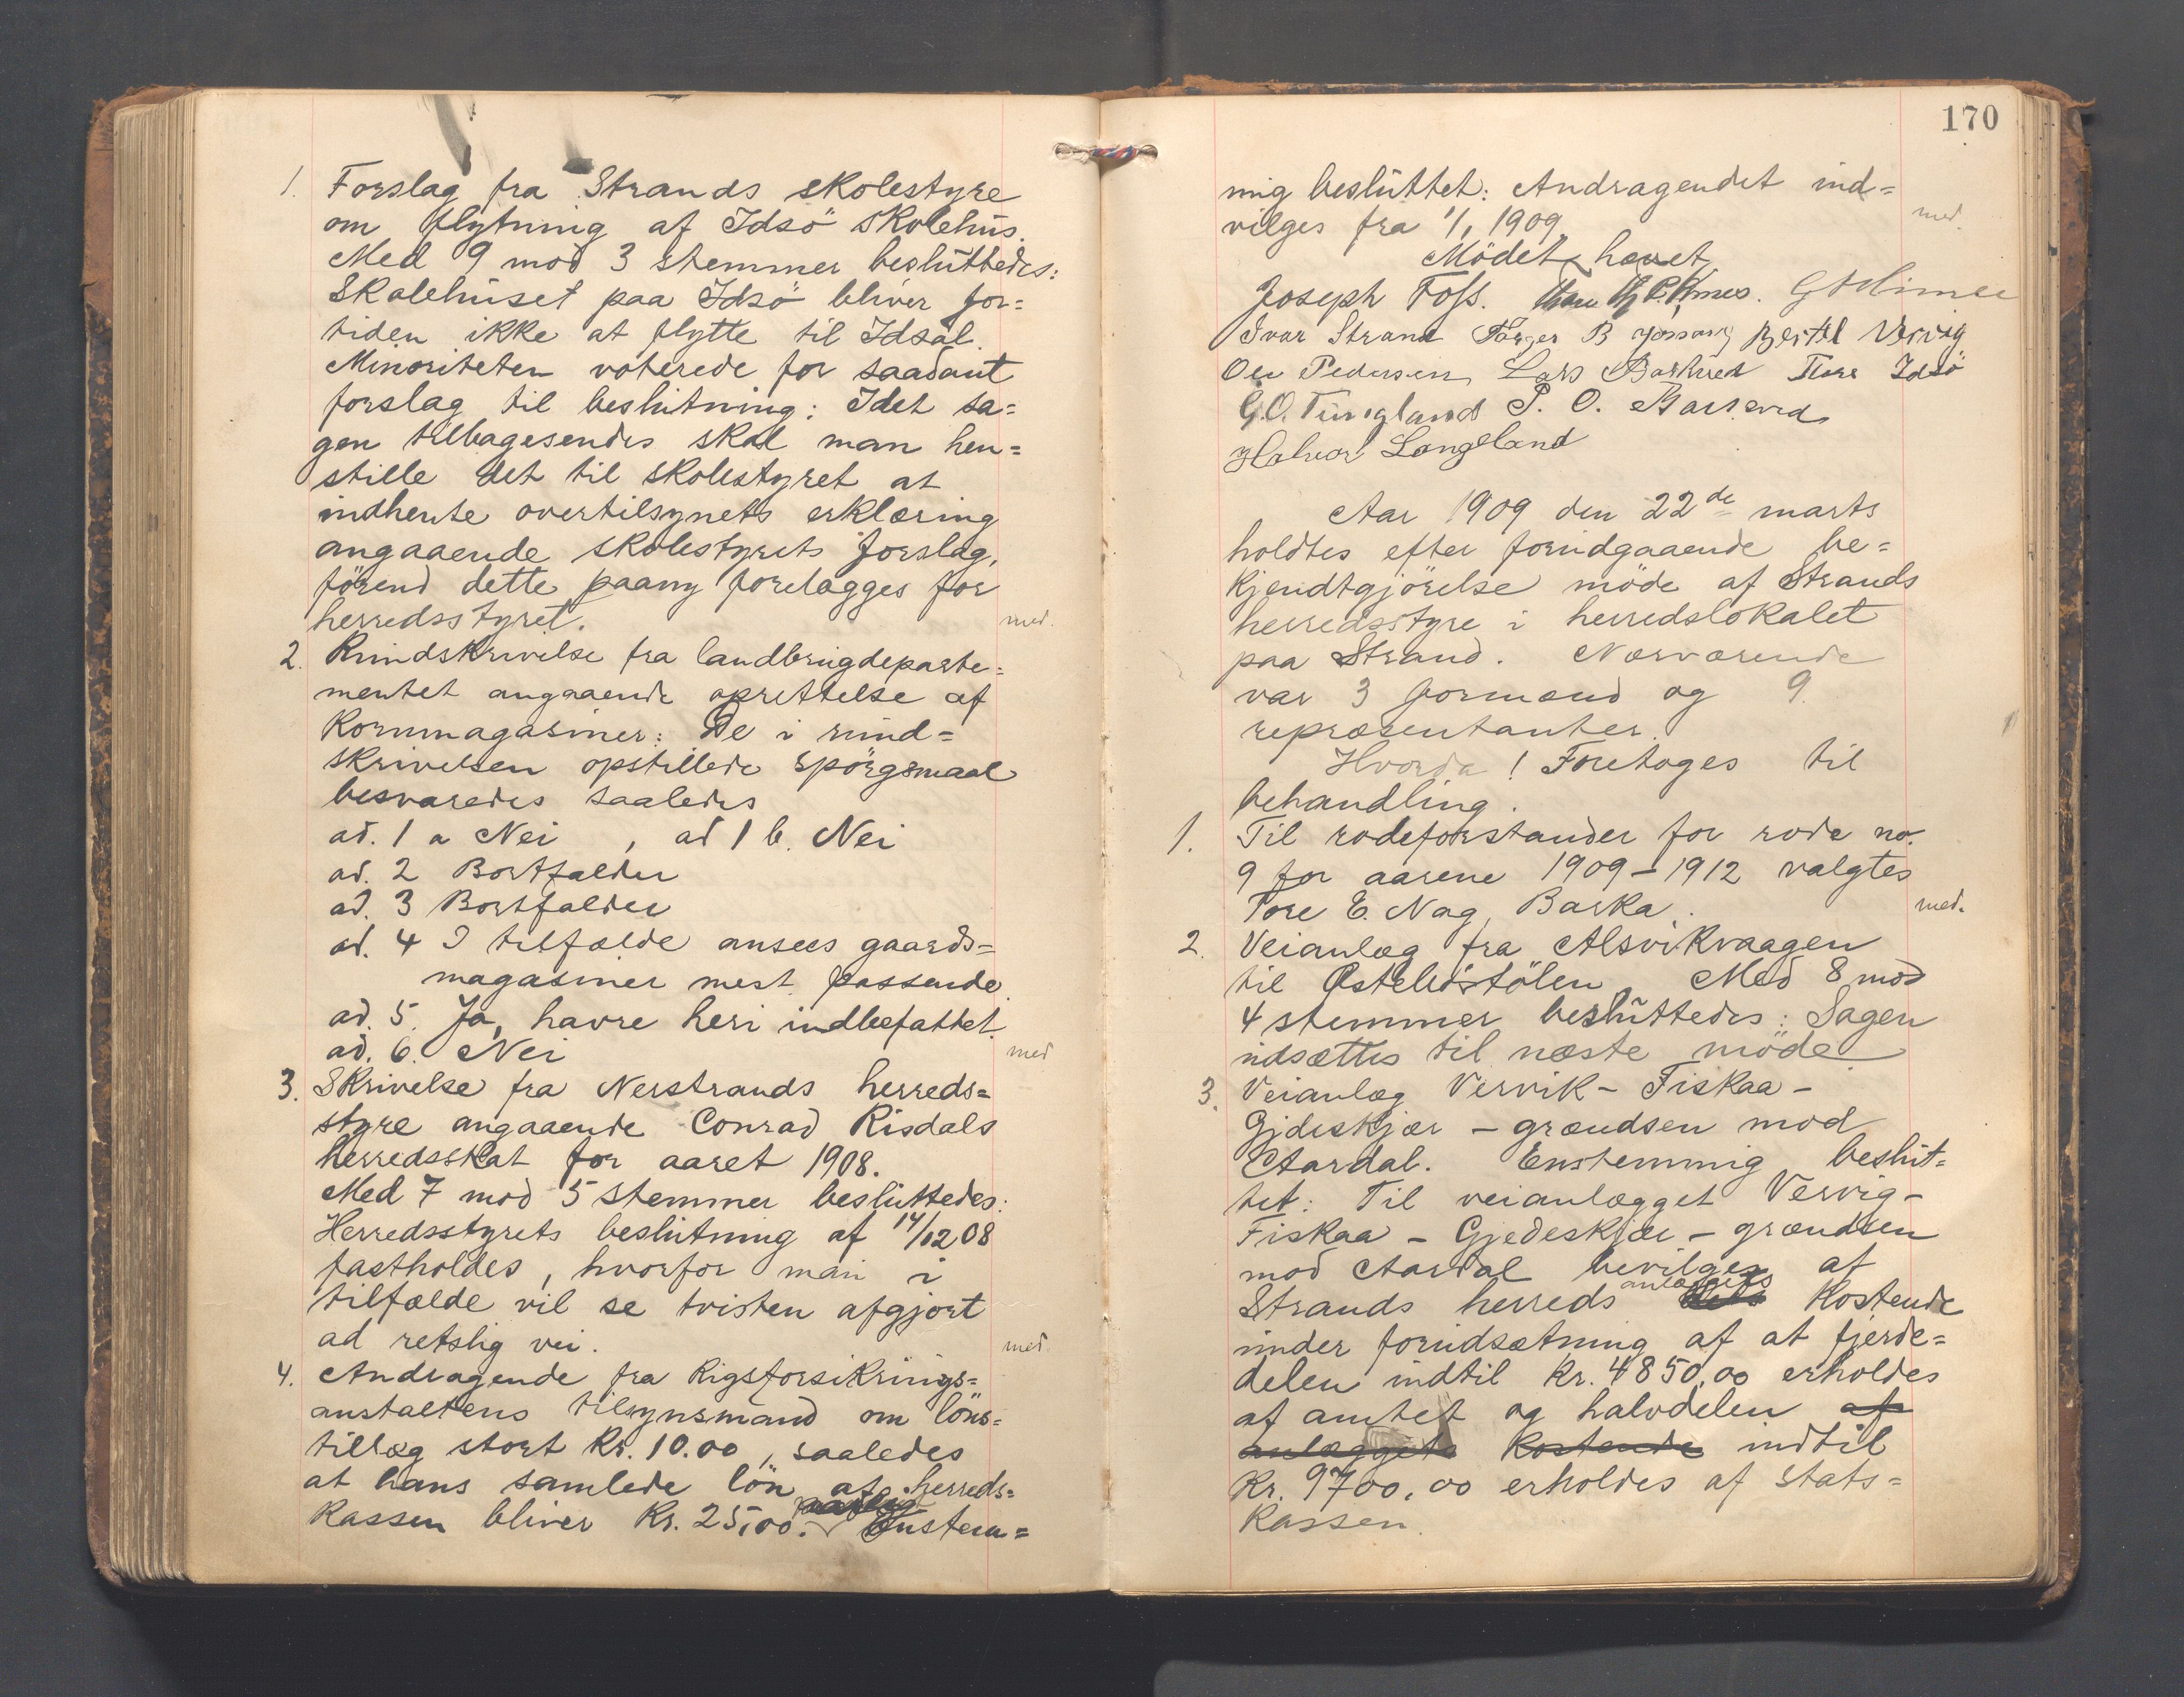 1. Forslag fra Strands skolestyre
om flytning af Idsö skolehus.
Med 9 mod 3 stemmer besluttedes:
Skolehuset paa Idsö bliver for=
tiden ikke at flytte til Idsal.
Minoriteten voterede for saadant
forslag til beslutning: Idet sa=
gen tilbagesendes skal man hen=
stille det til skolestyret at
indhente overtilsynets erklæring
angaaende skolestyrets forslag,
förend dette paany forelægges for
herredsstyret. med.
2. Rundskrivelse fra landbrugdeparte=
mentet angaaende oprettelse af
Kornmagasiner: De i rund=
skrivelsen opstillede spörgsmaal
besvaredes saaledes
ad. 1 a Nei , ad 1 b. Nei
ad. 2 Bortfalder
ad. 3 Bortfalder
ad. 4 I tilfælde ansees gaards=
magasiner mest passende.
ad. 5. Ja, havre heri indbefattet.
ad. 6. Nei med
3. Skrivelse fra Nerstrands herreds=
styre angaaende Conrad Risdals
herredsskat for aaret 1908.
Med 7 mod 5 stemmer besluttedes:
Herredsstyrets beslutning af 14/12 08
fastholdes, hvorfor man i
tilfælde vil se tvisten afgjort
ad retslig vei. med.
4. Andragende fra Rigsforsikrings=
anstaltens tilsynsmand om löns=
tillæg stort Kr. 10.00, saaledes
at hans samlede lön af herreds=
kassen bliver Kr. 25,00. Enstem=
170
mig besluttet: Andragendet ind=
vilges fra 1/1 1909. med.
Mödet hævet
Joseph Foss.
Ivar Strand Bertel Vervig
Ole Pedersen Lars Barkved Tore Idsö
G.O. Tungland P. O. Barkved
Halvor Langeland
Aar 1909 den 22de marts
holdtes efter forudgaaende be=
kjendtgjörelse möde af Strands
herredsstyre i herredslokalet
paa Strand. Nærværende
var 3 formænd og 9
repræsentanter.
Hvorda! Foretoges til
behandling.
1. Til rodeforstander for rode no.
9 for aarene 1909-1912 valgtes
Tore E. Nag, Barka. med.
2. Veianlæg fra Alsvikvaagen
til Östeliðstölen. Med 8 mod
4 stemmer besluttedes: Sagen
udsættes til næste möde.
3. Veianlæg Vervik - Fiskaa -
Gjdeskjær - grændsen mod
Aardal. Enstemmig beslut=
tet: Til veianlægget Vervig-
Fiskaa - Gjedeskjær - grændsen
mod Aardal bevilges af
Strands herreds anlæggets kostende
under forudsætning af at fjerde=
delen indtil Kr. 4850,00 erholdes
af amtet og halvdelen af
anlæggets kostende indtil
Kr. 9700.00 erholdes af stats=
kassen.